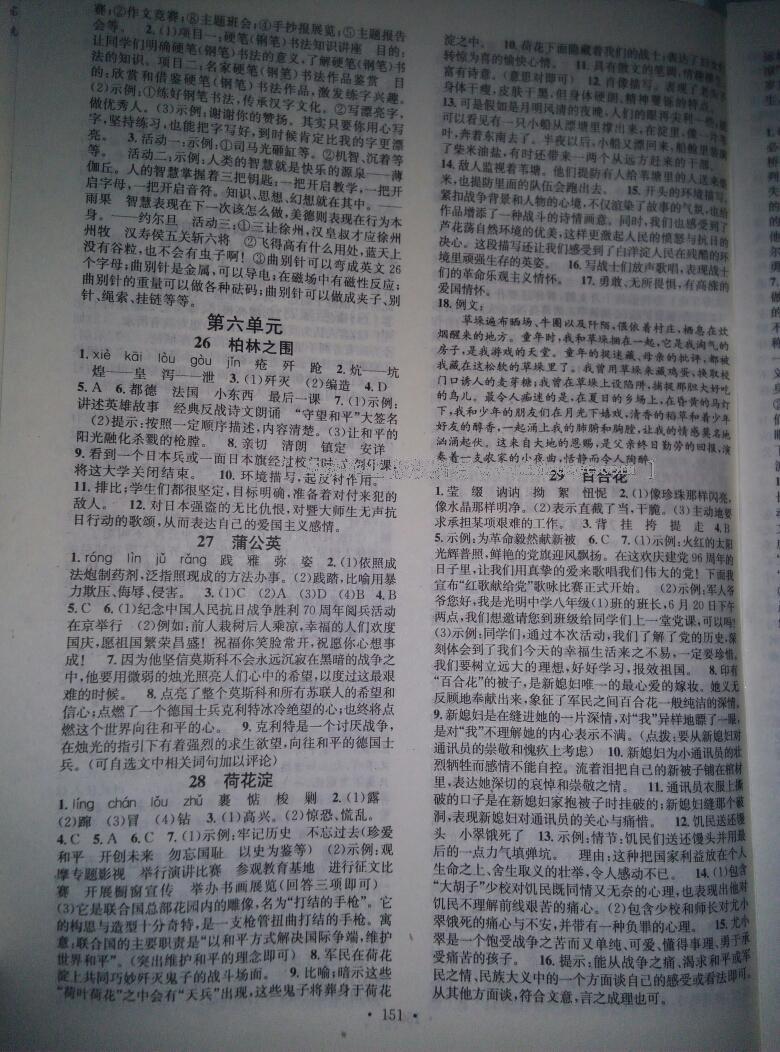 赛;②作文竞赛;③主题班会;④手抄报展览;⑤主题报告
会等。 2.(1)项目一:硬笔(钢笔)书法知识讲座 目的:
让同学们明确硬笔(钢笔)书法的意义,了解硬笔(钢笔)书
法的知识。项目二:名家硬笔(钢笔)书法作品鉴赏 目
的:欣赏和借鉴硬笔(钢笔)书法作品,激发练字兴趣。
(2)示例:①练好钢笔书法,传承汉字文化。②写漂亮字,
做优秀人。(3)示例:谢谢你的赞扬。其实只要你用心写
字,坚持练习,也能把字写好,到时候肯定比我的字更漂
亮。 3.活动一:示例:①司马光砸缸等。②机智、沉着等
等。 活动二:示例:人类的智慧就是快乐的源泉——薄
伽丘。人的智慧掌握着三把钥匙:一把开启数学,一把开
启字母,一把开启音符。知识、思想、幻想就在其中。——
雨果 智慧表现在下一次该怎么做,美德则表现在行为本
身。——约尔旦 活动三:①三让徐州,汉皇叔才应徐州
州牧 汉寿侯五关斩六将 ②飞得高有什么用处,蓝天上
没有谷粒,也不会有虫子啊! ③曲别针可以弯成英文26
个字母;曲别针是金属,可以导电;在磁场中有磁性反应;
曲别针的重量可以做各种砝码;曲别针可以做成夹子、别
针、绳索、挂链等等。
第六单元
26 柏林之围
1.xiè kāi lòu gòu jǐn 疮 歼 跄 2.炕——坑
煌——皇 泻——泄 3.(1)歼灭 (2)编造 4.D
5.A 6.都德 法国 小东西 最后一课 7.(1)示例:
讲述英雄故事 经典反战诗文朗诵 “守望和平”大签名
(2)提示:按照一定顺序描述,内容清楚。(3)让和平的
阳光融化杀戮的枪膛。 8.亲切 清朗 镇定 安详
9.看到一个日本兵或一面日本旗经过校门时 停课
将这大学关闭结束。 10.环境描写,起反衬作用。
11.排比;学生们都很坚定,目标明确,准备着对付来犯的
敌人。 12.对日本强盗的无比仇恨,对暨大师生无声抗
日行动的歌颂,从而表达自己的爱国主义感情。
27 蒲公英
1.róng lìn jǔ rǎng 践 雅 弥 姿 2.(1)依照成
法炮制药剂,泛指照现成的方法办事。(2)践踏,比喻用暴
力欺压、侮辱、侵害。 3.(1)C (2)A (3)D (4)B 4.B
5.C 6.(1)纪念中国人民抗日战争胜利70周年阅兵活动
在京举行 (2)例如:前人栽树后人乘凉,幸福的人们欢度
国庆,愿祖国繁荣昌盛! 祝福你笑脸常开,祝愿你心想事
成! 7.因为他坚信莫斯科不会永远沉寂在黑暗的战争之
中,他要用微弱的烛光照亮人们心中的希望,以度过这最艰
难的时候。 8.点亮了整个莫斯科和所有苏联人的希望和
信心;点燃了一个德国士兵克利特冰冷绝望的心;也终将点
燃这个世界向往和平的心。 9.克利特是一个讨厌战争,
在烛光的指引下有着强烈的求生欲望,向往和平的德国士
兵。(可自选文中相关词句加以评论)
28 荷花淀
1.líng chán lǒu zhǔ 裹 惦 梭 剿 2.(1)露
(2)蹿 (3)冒 (4)钻 3.(1)高兴。(2)惊恐、慌乱。
4.C 5.A 6.C 7.(1)示例:牢记历史 不忘过去(珍爱
和平 开创未来 勿忘国耻 以史为鉴等) (2)示例:观
摩专题影视 举行演讲比赛 参观教育基地 进行征文比
赛 开展橱窗宣传 举办书画展览(回答三项即可)
(3)它是联合国总部花园内的雕像,名为“打结的手枪”。它
的构思与造型十分奇特,是一支枪管扭曲打结的手枪。寓
意:联合国的主要职责是“以和平方式解决国际争端,维护
世界和平”。(突出维护和平的理念即可) 8.军民在荷花
淀上共同巧妙歼灭鬼子的战斗场面。 9.比喻;暗示这些
“荷叶荷花”之中会有“天兵”出现,这些鬼子将葬身于荷花
淀之中。 10.荷花下面隐藏着我们的战士;表达了
转惊为喜的愉快心情。 11.具有散文的笔调,情趣
富有诗意。(意思对即可) 12.肖像描写。表现了老头子
身体干瘦,皮肤干黑,但身体硬朗、精神矍铄的特点。
13.可是假如是月明风清的夜晚,人们的眼再尖利一些,就
可以看见有一只小船从漂塘里撑出来,在淀里,像一片苇
叶,奔着东南去了。半夜以后,小船又漂回来,船舱里装满
了柴米油盐,有时还带来一两个从远方赶来的干部。
14.敌人监视着苇塘。他们提防有人给苇塘里的人送来柴
米,也提防里面的队伍会跑出去。 15.开头的环境描写,
紧扣战争背景和人物的心境,不仅渲染了故事的气氛,也给
作品增添了一种战斗的诗情画意。同时,我们也感受到了
芦花荡自然环境的优美,这样更激起人民的愤怒与抗日的
决心。这段描写还让我们感受到了白洋淀人民在残酷的环
境里顽强生存的英姿。 16.写战士们放声歌唱,表现战士
们的革命乐观主义情怀。 17.勇敢、无所畏惧,有高涨的
爱国情怀。
18.例文:
草垛遍布晒场、牛圈以及阡陌,偎依着村庄,栖息在炊
烟醒来的地方。童年时,我和草垛拥在一起,它是我淘气的
房子,是我游戏的天堂。童年的捉迷藏、母亲的批评,都被
我藏在这松软的草垛里了。我曾用草垛来藏鸡蛋,换取校
门口诱人的麦芽糖;我曾在草垛上设陷阱,捕捉那胆大好吃
的鸟儿。最令人痴迷的是,在夏日的乡场上,在昏黄的马灯
下,我和少年的朋友们在月光下嬉戏,清香的稻草和着少年
好友的醇香,一起涌上我的肺腑和胸膛,让我的情感莫名地
汹涌起伏。这来自大地的恩赐,是父亲终日勤劳的回报,演
奏着一支农家的小夜曲,恬静而令人陶醉。
29 百合花
1.莹 缀 讷讷 拗 絮 忸怩 2.(1)像珍珠那样闪亮,
像水晶那样明净。(2)表示直截了当,干脆。(3)主动地要
求承担某项艰难的工作。 3.背 挂 挎 提 走 4.B
5.示例:为革命毅然献新被 6.C 7.(1)示例:火红的太阳
光辉普照,鲜艳的党旗迎风飘扬。在这欢庆建党96周年的
日子里,让我们用真挚的爱来歌唱我们伟大的党! 下面我
宣布“红歌献给党”歌咏比赛正式开始。 (2)示例:军人爷
爷您好,我是光明中学八年级(1)班的班长,6月20日下午
两点,我们想邀请您到班级给同学们上一堂党课,可以吗?
(3)示例:同学们,通过本次活动,我们了解了党的历史,深
刻体会到了我们今天的幸福生活来之不易,一定要珍惜,
我们要树立远大的理想,好好学习,报效祖国。 8.印有
“百合花”的被子,是新媳妇唯一的最心爱的嫁妆。她义无
反顾地奉献出来,象征了军民之间百合花一般纯洁的深情。
9.新媳妇是在缝进她的一片深情,对“我”异样地瞟了一眼,
是对“我”不理解她的内心表示不满。(点拨:要从新媳妇对
通讯员的崇敬和愧疚上考虑) 10.新媳妇为小通讯员的壮
烈牺牲而感情不能自控。流着泪把自己的新被子铺在棺材
里,表达她深切的哀悼和崇敬之情。 11.通讯员衣服上撕
破的口子是在新媳妇家抱被子时挂破的;新媳妇缝那个破
洞,表现新媳妇对通讯员的关心与痛惜。 12.饥民送还馒
头 小翠饿死了 13.示例:情节:饥民们送还馒头并用最
后的一点力气填弹坑。 理由:这种把国家利益放在个人
生命之上、舍生取义的壮举,令人感动不已。 14.(1)包含
“大胡子”少校对饥民既同情又无奈的心理,也表现出他对
饥民不理解前线艰苦的痛心。(2)包含少校和师长对尤小
翠饿死的痛心与不安,并带有一种负罪的心理。 15.尤小
翠是一个饱受战争之苦而又单纯、可爱、懂得事理、勇于承
受痛苦的孩子。 16.提示:能从战争之痛、渴求和平或军
民之情、民族大义中的一个方面谈自己的感受或看法即可。
从其他方面谈,符合文意,言之成理也可。
• 151 •